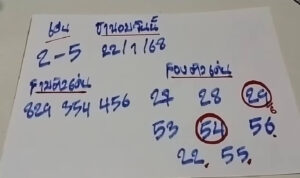 เด่น
2-5
22/1/68
สามตัวเด่น
829 354 456
สองตัวเด่น
27 28 29
53 54 56
22. 55.